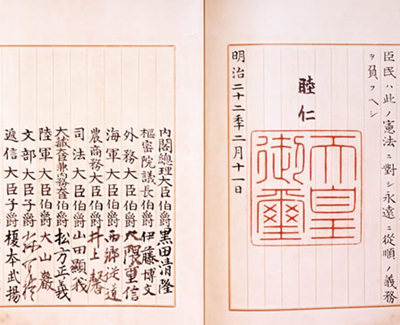 臣民ハ此ノ憲法ニ對シ永遠ニ從順ノ義務
ヲ負フヘシ
睦仁
天皇
御璽
明治二十二年二月十一日
内閣總理大臣伯爵 黒田清隆
樞密院議長伯爵 伊藤博文
外務大臣伯爵 大隈重信
海軍大臣伯爵 西郷從道
農商務大臣伯爵 井上馨
司法大臣伯爵 山田顯義
大藏大臣兼内務大臣伯爵 松方正義
陸軍大臣伯爵 大山巖
文部大臣子爵 森有禮
遞信大臣子爵 榎本武揚